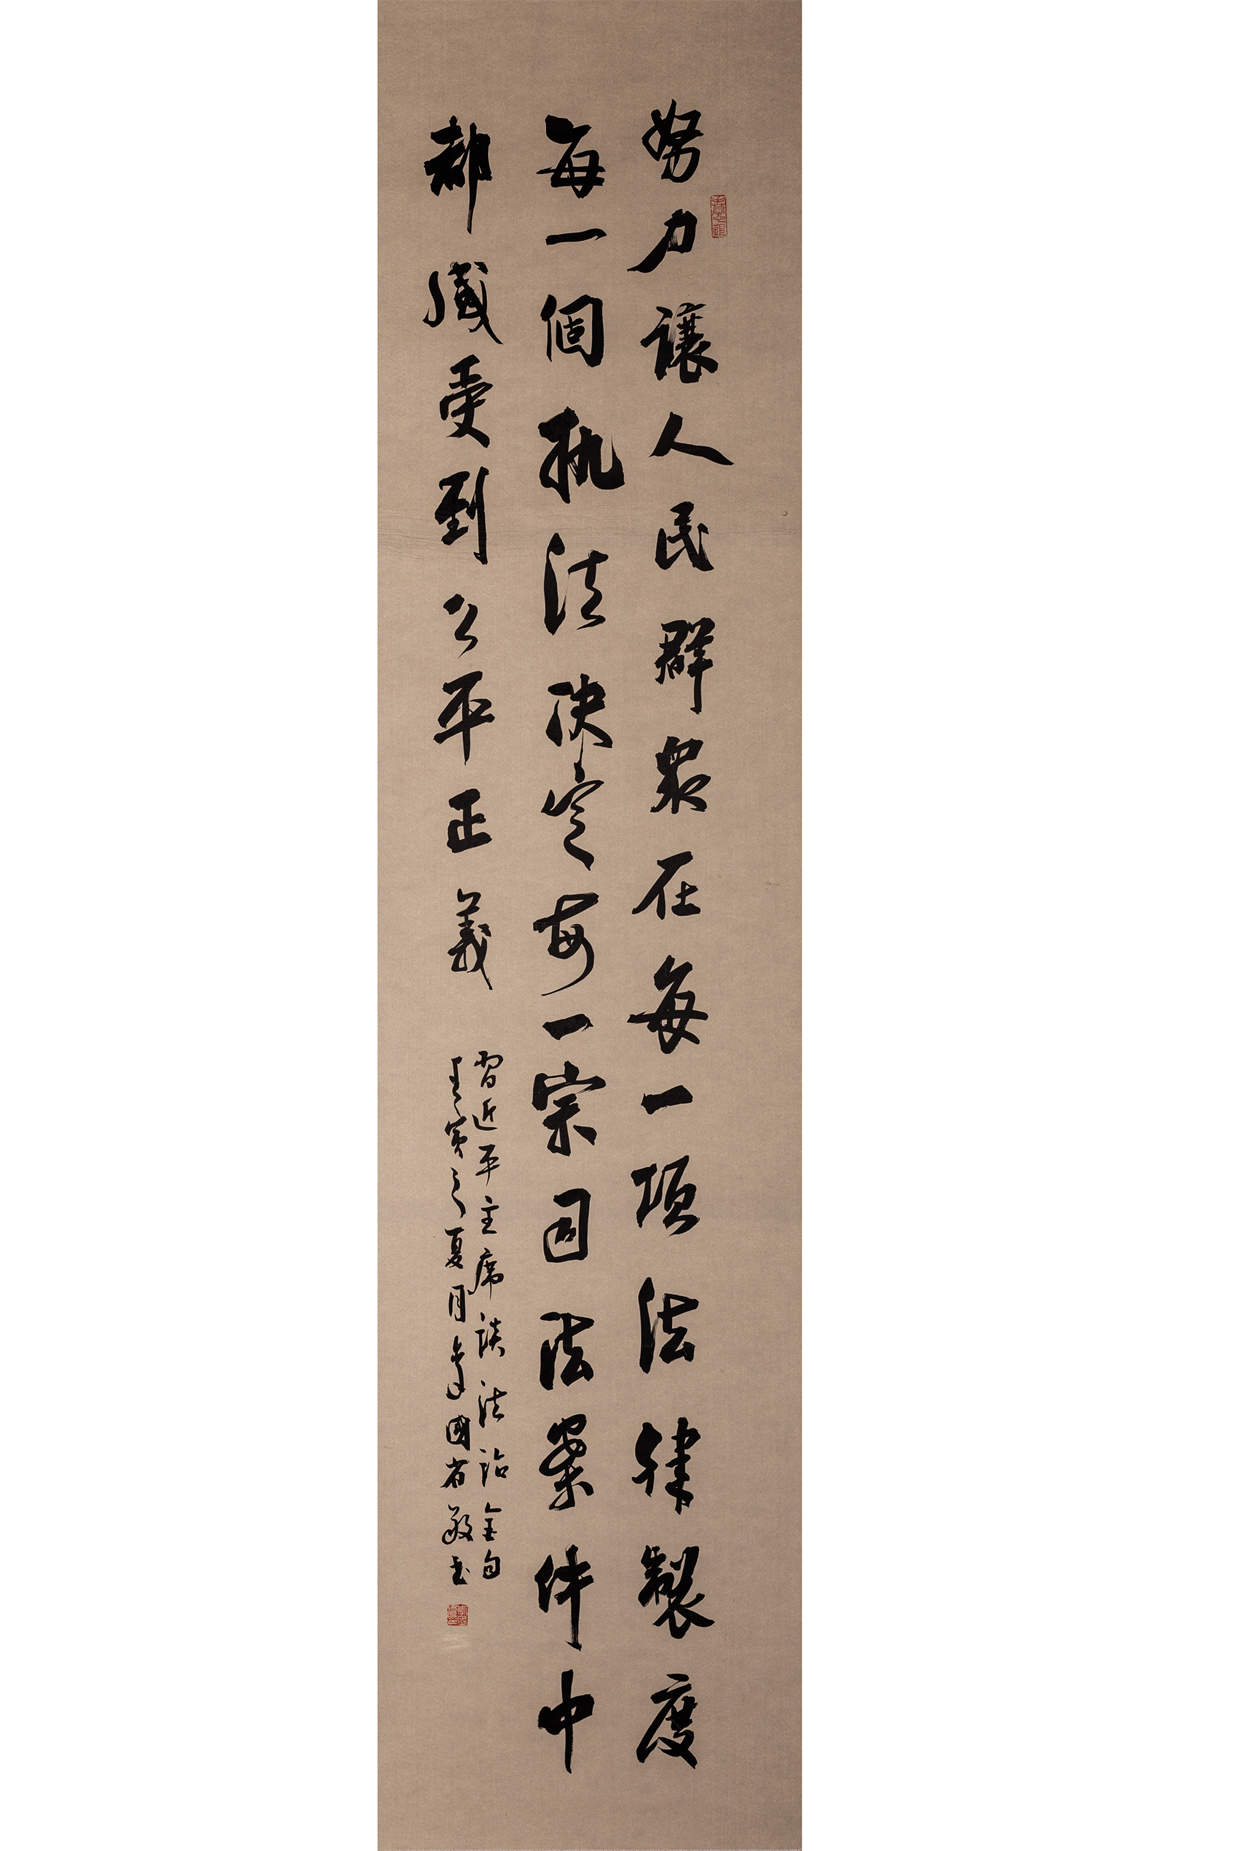 努力讓人民群眾在每一項法律製度
每一個執法決定每一宗司法案件中
都感受到公平正義
習近平主席談法治金句
壬寅之夏月李國省敬書